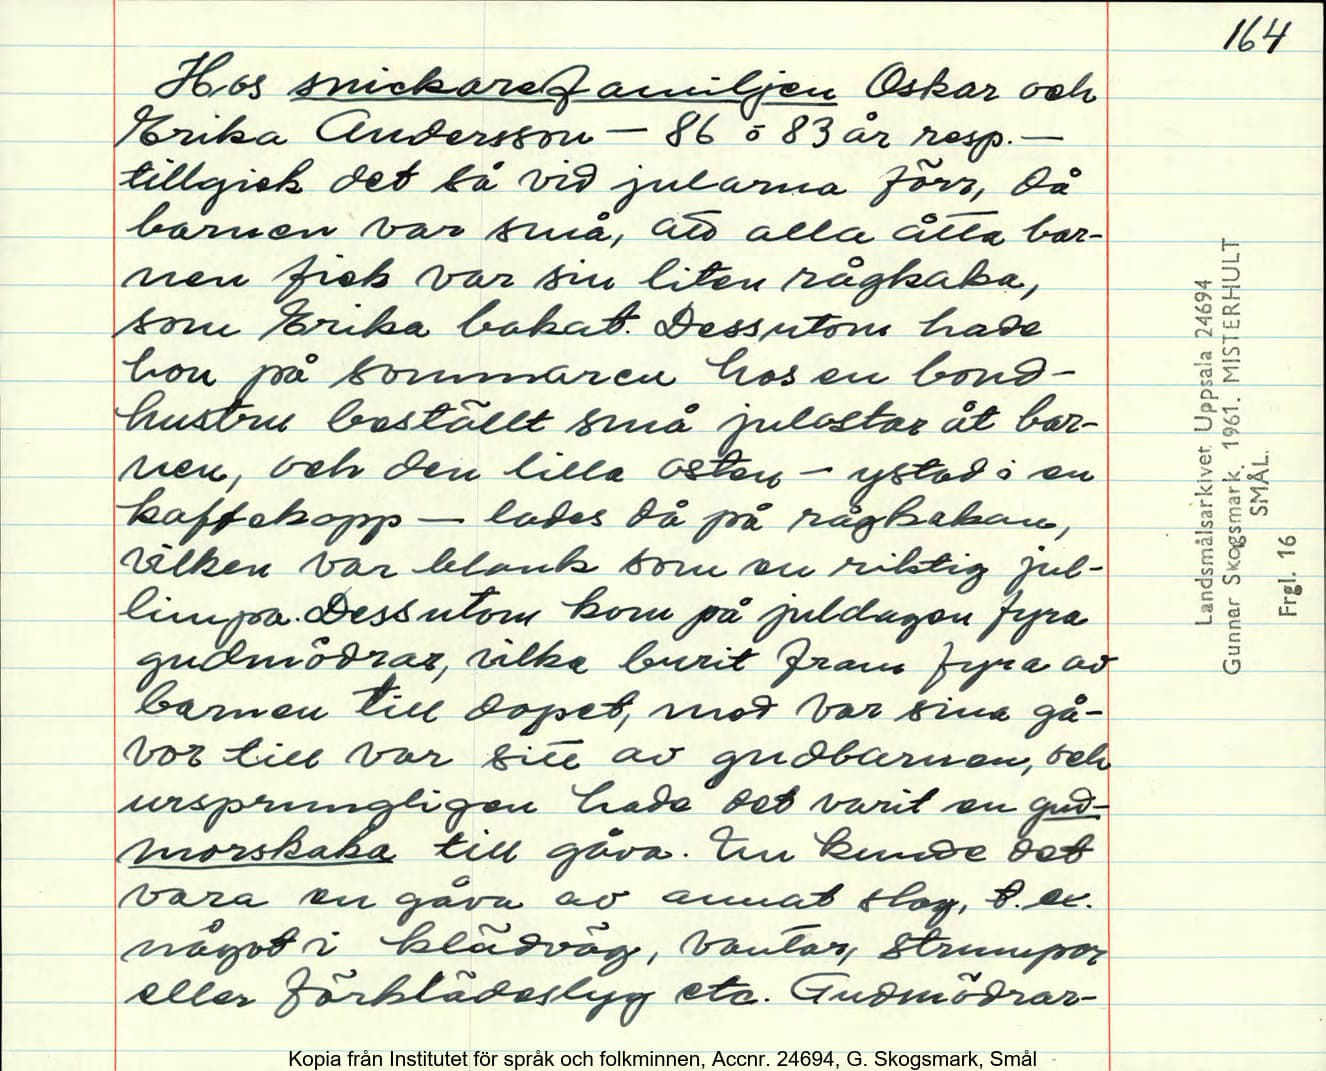 164
Hos snickarefamiljen Oskar och
Erika Andersson — 86 o 83 år resp. —
tillgick det så vid jularna förr, då
barnen var små, att alla åtta bar-
nen fick var sin liten rågkaka,
som Erika bakat. Dessutom hade
hon på sommaren hos en bond-
hustru beställt små julostar åt bar-
nen, och den lilla osten — ystad i en
kaffekopp — lades då på rågkakan,
vilken var blank som en riktig jul-
limpa. Dessutom kom på juldagen fyra
gudmödrar, vilka burit fram fyra av
barnen till dopet, med var sina gå-
vor till var sitt av gudbarnen, och
ursprungligen hade det varit en gud-
morskaka till gåva. Nu kunde det
vara en gåva av annat slag, t. ex.
något i klädväg, vantar, strumpor
eller förklädestyg etc. Gudmödrar-
Landsmålsarkivet Uppsala 24694
Gunnar Skogsmark. 1961. MISTERHULT
SMÅL.
Frgl. 16
Kopia från Institutet för språk och folkminnen, Accnr. 24694, G. Skogsmark, Smål